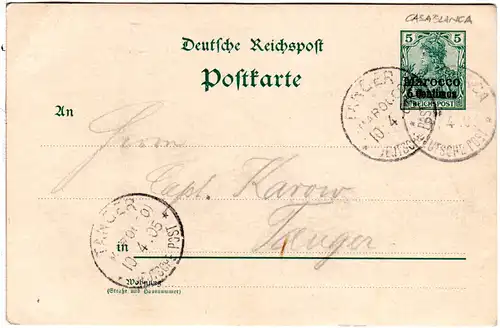 CASABLANCA
Deutsche Reichspost
Postkarte
5 5
Marocco
5 Centimos
REICHSPOST
TANGER
MAROCCO
10 4
DEUTSCHE POST
An
Herrn
Capt. Karow
Tanger
TANGER
10 4 05
DEUTSCHE POST
in
Wohnung
(Straße und Hausnummer)